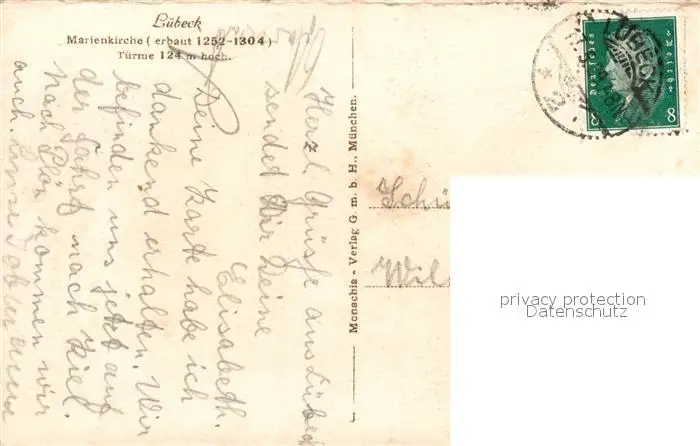 Lübeck
Marienkirche (erbaut 1252-1304)
Türme 124 m hoch.
Herzl. Grüsse aus Lübeck
sendet Dir Deine
Elisabeth.
Deine Karte habe ich
dankend erhalten. Wir
befinden uns jetzt auf
der Fahrt nach Kiel.
Nach Plön kommen wir
auch.
Monachia - Verlag G. m. b. H., München.
LÜBECK
Deutsches
Reich
8 8
Schü
Wil
privacy protection
Datenschutz